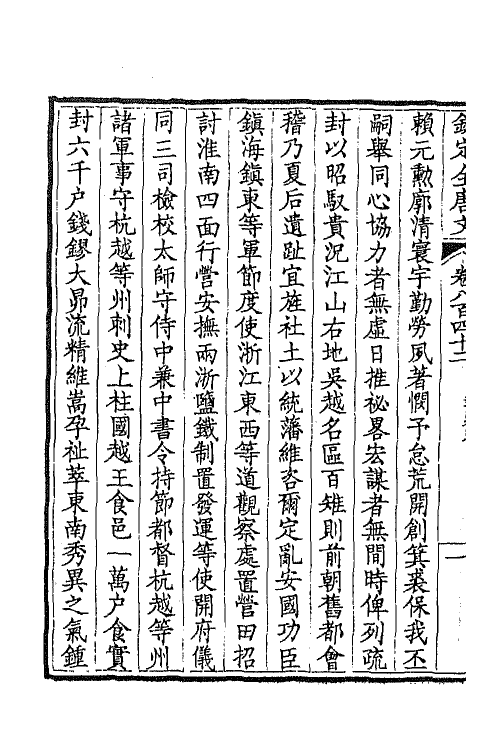 欽定全唐文 卷八百四十二
賴元勲廓清寰宇勤勞夙著憫予怠荒開創箕裘保我丕
嗣舉同心協力者無虛日推祕畧宏謀者無間時俾列疏
封以昭馭貴況江山右地吳越名區百雉則前朝舊都會
稽乃夏后遺趾宜旌社土以統藩維咨爾定亂安國功臣
鎮海鎮東等軍節度使浙江東西等道觀察處置營田招
討淮南四面行營安撫兩浙鹽鐵制置發運等使開府儀
同三司檢校太師守侍中兼中書令持節都督杭越等州
諸軍事守杭越等州刺史上柱國越王食邑一萬户食實
封六千户錢鏐大昴流精維嵩孕祉萃東南秀異之氣鍾